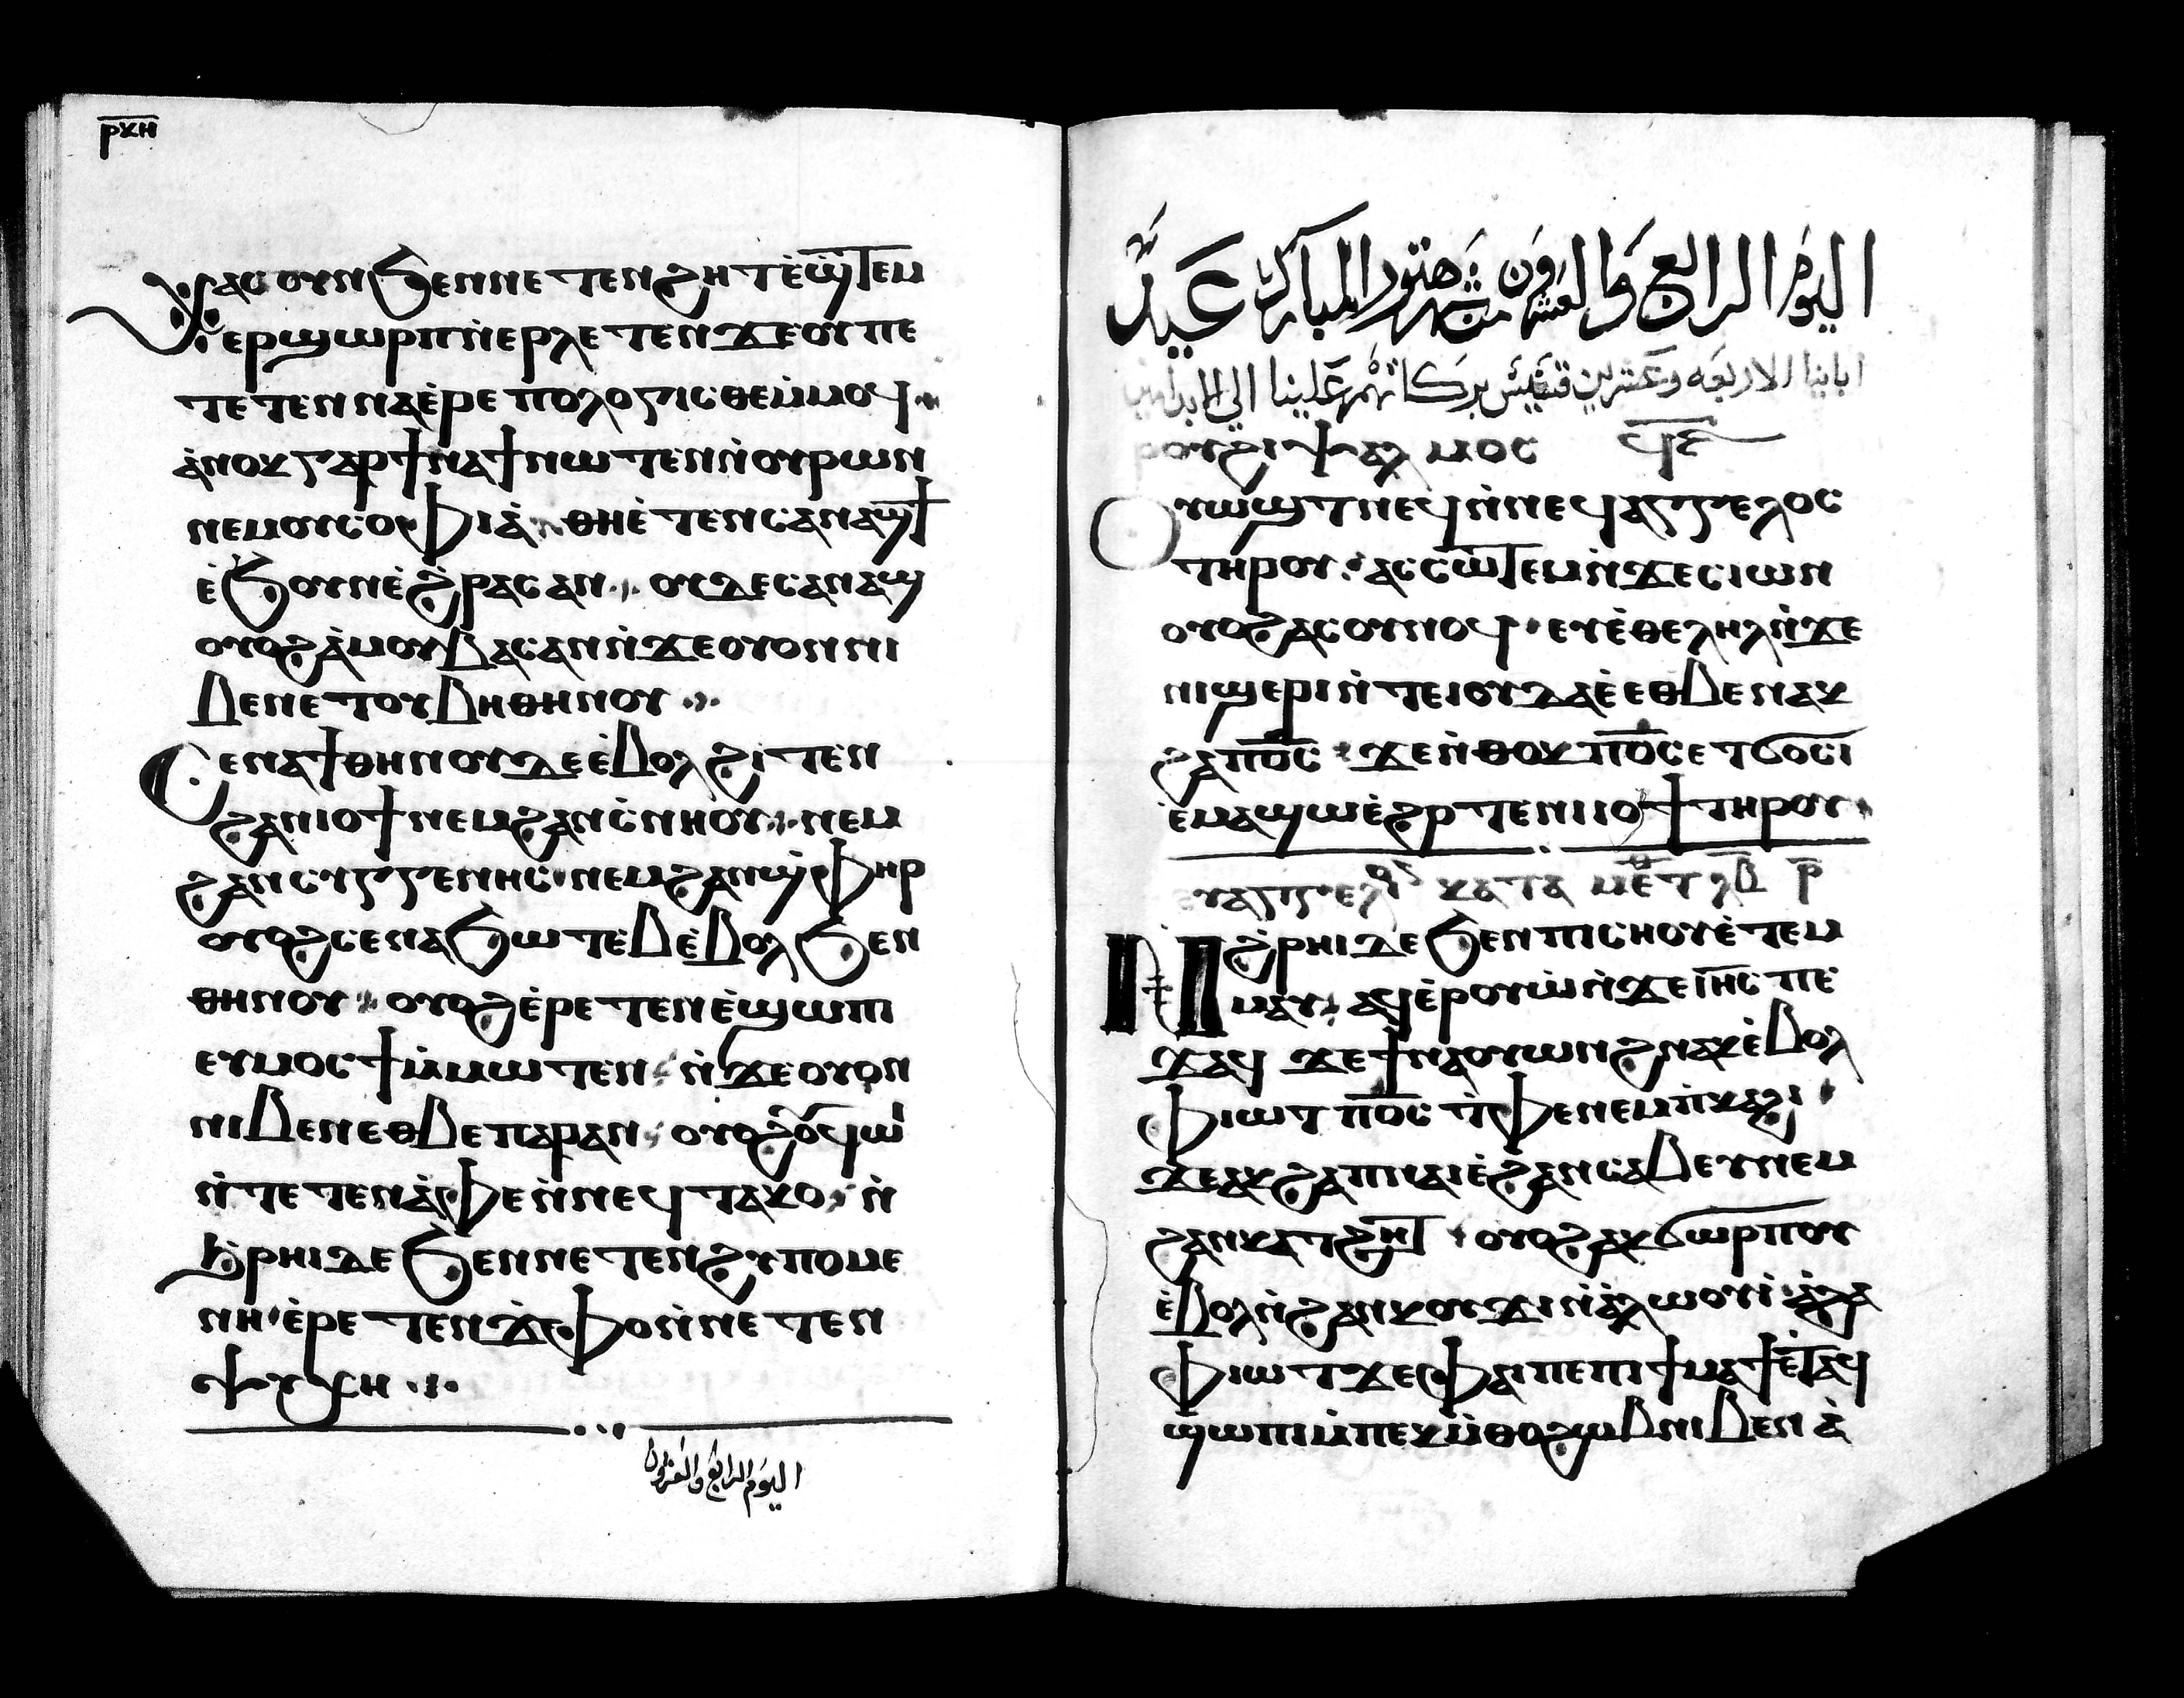 ⲣⲕⲏ
ⲭⲁⲥ ⲟⲩⲛ ϧⲉⲛ ⲛⲉⲧⲉⲛϩⲏⲧ ⲉ̀ϣⲧⲉⲙ
ⲉⲣϣⲱⲣⲡ ⲛ̀ⲉⲣⲙⲉⲗⲉⲧⲁⲛ ϫⲉ ⲟⲩ ⲡⲉ
ⲧⲉⲧⲉⲛⲛⲁⲉ̀ⲣⲉⲡⲟⲗⲟⲅⲓⲥⲑⲉ ⲙ̀ⲙⲟϥ
ⲁ̀ⲛⲟⲕ ⲅⲁⲣ ϯⲛⲁϯ ⲛⲱⲧⲉⲛ ⲛ̀ⲟⲩⲣⲱⲛ
ⲛⲉⲙ ⲟⲩⲥⲟⲫⲓⲁ̀ ⲑⲏ ⲉ̀ⲧⲉⲛⲥⲉⲛⲁϣϯ
ⲉ̀ϧⲟⲩⲛ ⲉ̀ϩⲣⲁⲥ ⲁⲛ ⲟⲩⲇⲉ ⲥⲉⲛⲁϣ
ⲟⲩⲟϩⲁ̀ⲙ ⲟⲩⲃⲁⲥ ⲁⲛ ⲛ̀ϫⲉ ⲟⲩⲟⲛ ⲛⲓ
ⲃⲉⲛ ⲉⲧⲟⲩⲃⲏⲑⲏⲛⲟⲩ
ⲥⲉⲛⲁϯ ⲑⲏⲛⲟⲩ ⲇⲉ ⲉ̀ⲃⲟⲗϩⲓⲧⲉⲛ
ϩⲁⲛⲓⲟϯ ⲛⲉⲙ ϩⲁⲛⲥ̀ⲛⲏⲟⲩ ⲛⲉⲙ
ϩⲁⲛⲥⲩⲅⲅⲉⲛⲏⲥ ⲛⲉⲙ ϩⲁⲛϣ̀ⲫⲏⲣ
ⲟⲩⲟϩ ⲥⲉⲛⲁϧⲱⲧⲉⲃ ⲉ̀ⲃⲟⲗ ϧⲉⲛ
ⲑⲏⲛⲟⲩ ⲟⲩⲟϩ ⲉ̀ⲣⲉⲧⲉⲛⲉ̀ϣⲱⲡⲓ
ⲉⲩⲙⲟⲥϯ ⲙ̀ⲙⲱⲧⲉⲛ ⲛ̀ϫⲉ ⲟⲩⲟⲛ
ⲛⲓⲃⲉⲛ ⲉⲑⲃⲉ ⲡⲁⲣⲁⲛ ⲟⲩⲟϩ ⲟⲩϥⲱⲓ
ⲛ̀ⲧⲉ ⲧⲉⲛⲁ̀ⲫⲉ ⲛ̀ⲛⲉϥⲧⲁⲕⲟ ⲛ̀
ϩ̀ⲣⲏⲓ ⲇⲉ ϧⲉⲛ ⲛⲉⲧⲉⲛϩⲩⲡⲟⲙⲉ
ⲛⲏ ⲉ̀ⲣⲉⲧⲉⲛϫ̀ⲫⲟ ⲛ̀ⲛⲉⲧⲉⲛ
ⲯⲩⲭⲏ
اليوم الرابع والعشرون
اليوم الرابع والعشرون من شهر هتور المبارك عيد
ابائنا الاربعه وعشرين قسيس بركاتهم علينا الي الابد امين
ⲣⲟⲩϩⲓ ⲯⲁⲗⲙⲟⲥ ϥⲋ
ⲟⲩⲱϣⲧ ⲛⲉϥ ⲛ̀ⲛⲉϥⲁⲅⲅⲉⲗⲟⲥ
ⲧⲏⲣⲟⲩ ⲁⲥⲥⲱⲧⲉⲙ ⲛ̀ϫⲉ ⲥⲓⲱⲛ
ⲟⲩⲟϩ ⲁⲥⲟⲩⲛⲟϥ ⲉⲩⲉ̀ⲑⲉⲗⲏⲗ ⲛ̀ϫⲉ
ⲛⲓϣⲉⲣⲓ ⲛ̀ⲧⲉ ⲓⲟⲩⲇⲁⲉ̀ ⲉⲑⲃⲉ ⲛⲁⲕ
ϩⲁⲡ ⲡⲟ̅ⲥ̅ ϫⲉ ⲛ̀ⲑⲟⲕ ⲡⲟ̅ⲥ̅ ⲉⲧϭⲟⲥⲓ
ⲉ̀ⲙⲁϣⲱ ⲉ̀ϩⲣⲧⲉⲛ ⲛⲓⲟϯ ⲧⲏⲣⲟⲩ
ⲉⲩⲁⲅⲅⲉⲗⲓ ⲕⲁⲧⲁ ⲙⲁⲧⲑ ⲗⲃ ⲣ̅
ⲛ̀ϩ̀ⲣⲏⲓ ⲇⲉ ϧⲉⲛ ⲡⲓⲥⲏⲟⲩ ⲉ̀ⲧⲉⲙ
ⲙⲁⲩ ⲁϥⲉ̀ⲣⲟⲩⲱ̀ ⲛ̀ϫⲉ ⲓⲏ̅ⲥ̅ ⲡⲉ
ϫⲁϥ ϫⲉ ϯⲛⲁⲟⲩⲱⲛϩ ⲛⲁⲕ ⲉ̀ⲃⲟⲗ
ⲫⲓⲱⲧ ⲡⲟ̅ⲥ̅ ⲛ̀ⲧⲫⲉ ⲛⲉⲙ ⲡ̀ⲕⲁϩⲓ
ϫⲉ ⲁⲕϩⲁⲡ ⲛⲁⲓ ⲉ̀ϩⲁⲛⲥⲁⲃⲉⲩ ⲛⲉⲙ
ϩⲁⲛⲕⲁⲧϩⲏⲧ ⲟⲩⲟϩ ⲁⲕϭⲱⲣⲡⲟⲩ
ⲉ̀ⲃⲟⲗ ⲛ̀ϩⲁⲛⲕⲟⲩϫⲓ ⲛ̀ⲁ̀ⲗⲱⲟⲩⲓ̀ ⲁ̀ϩⲁ
ⲫⲓⲱⲧ ϫⲉ ⲫⲁⲓ ⲡⲉ ⲡⲓϯⲙⲁϯ ⲉ̀ⲧⲁϥ
ϣⲱⲡⲓ ⲙ̀ⲡⲉⲕⲙ̀ⲑⲟ ϩⲱⲃ ⲛⲓⲃⲉⲛ ⲁ̀